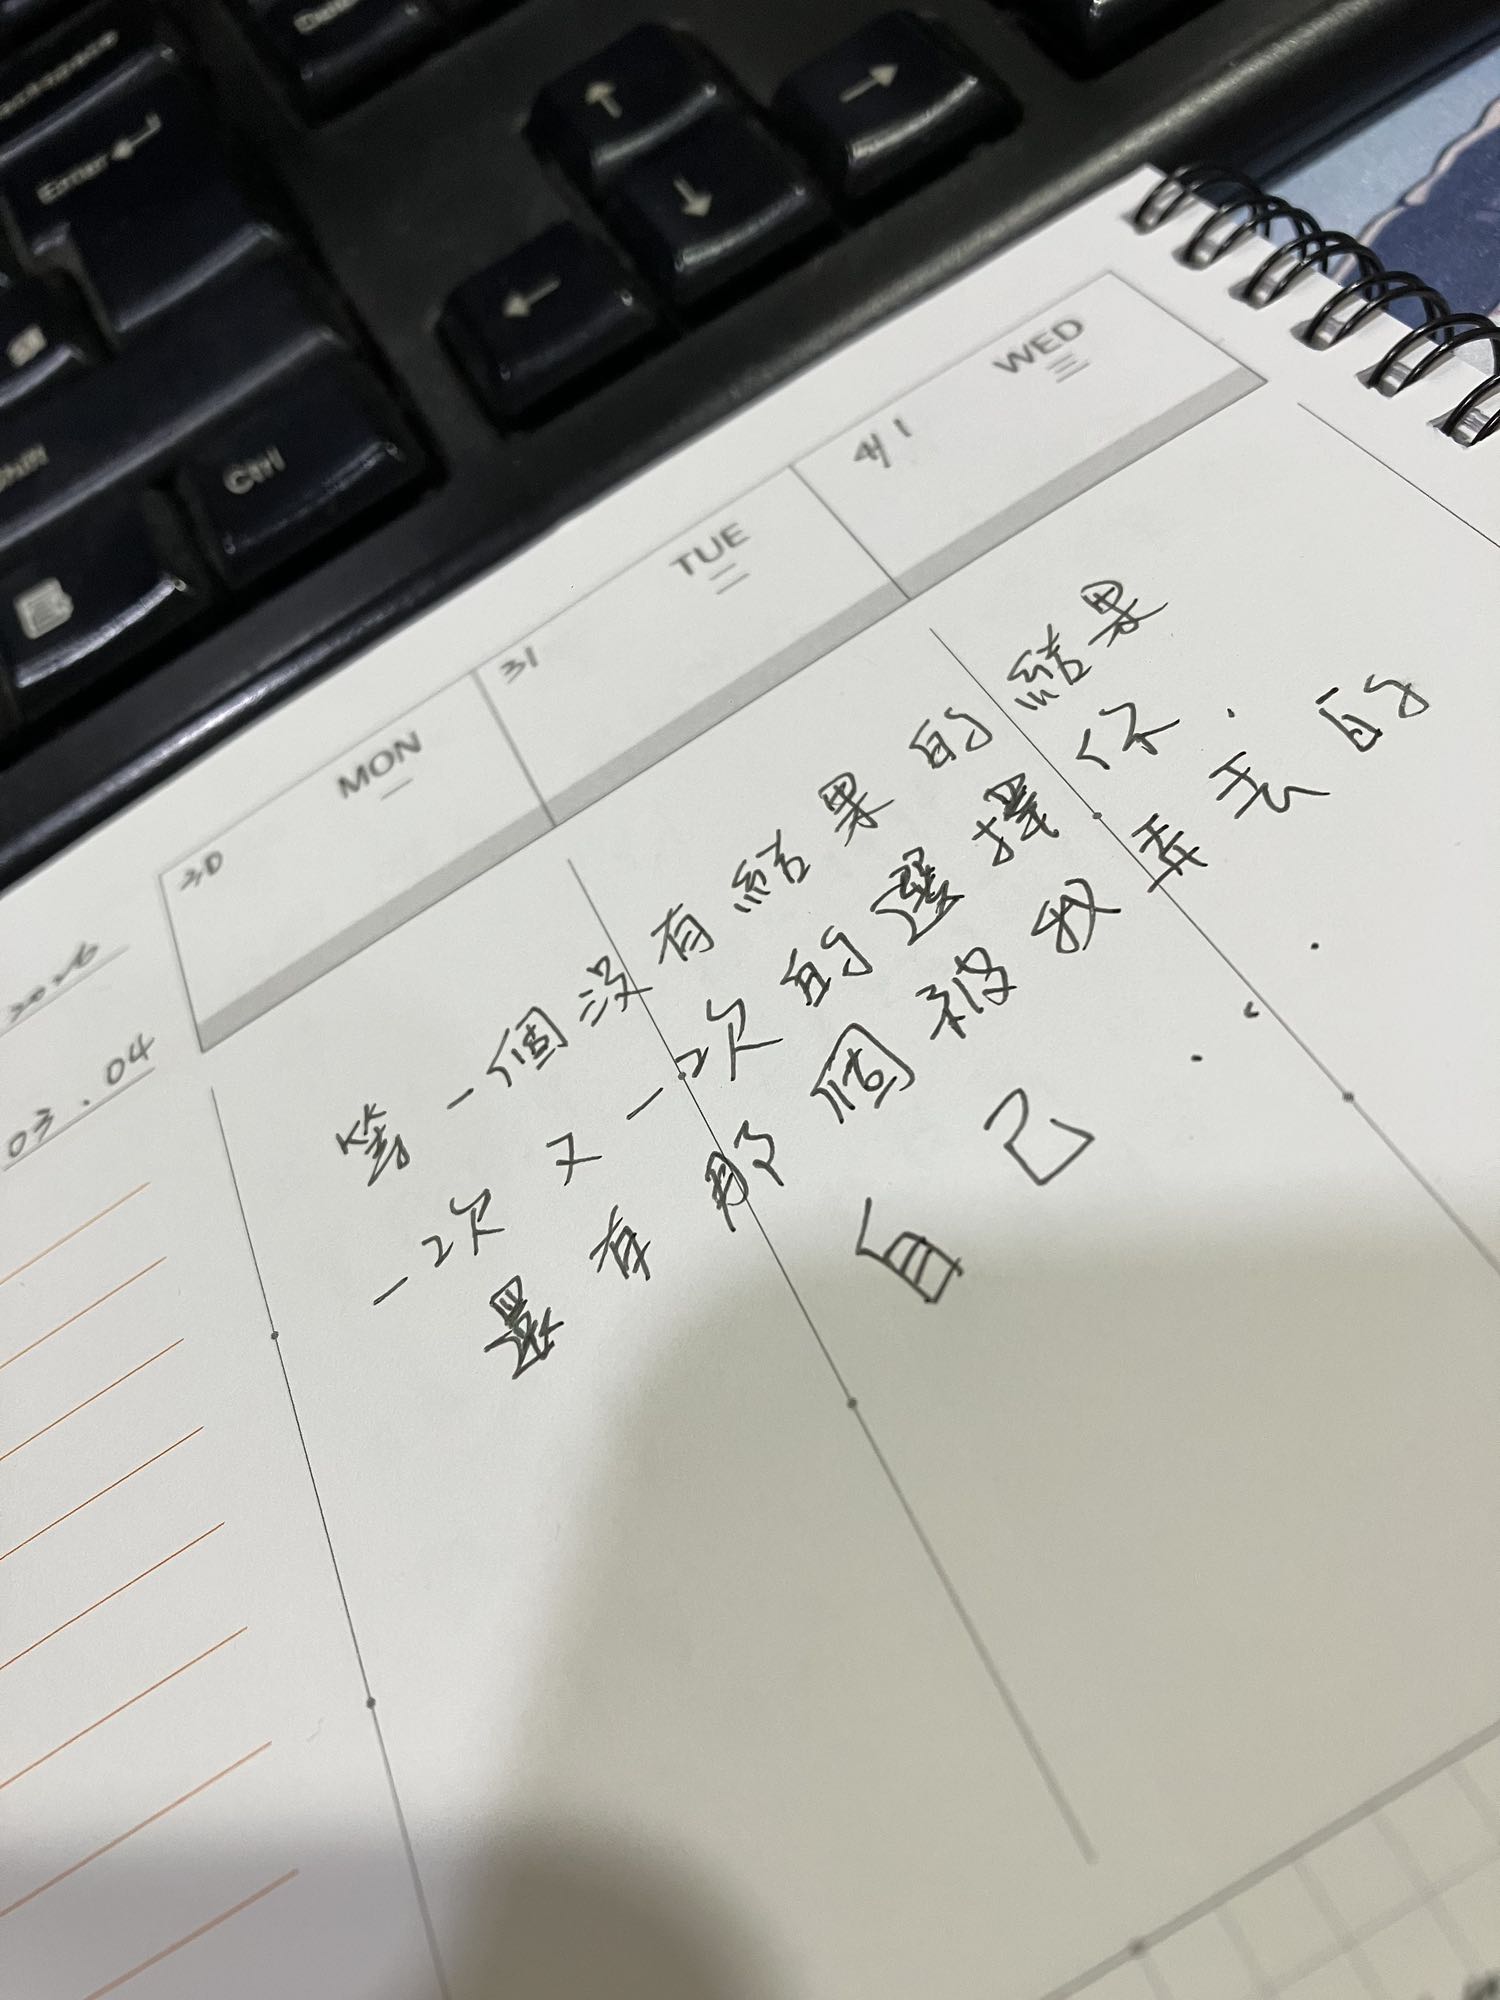 Enter
Ctrl
WED
三
4/1
TUE
二
31
MON
一
30
2026
03.04
等一個沒有結果的結果
一次又一次的選擇你.
還有那個被我弄丟的
自己